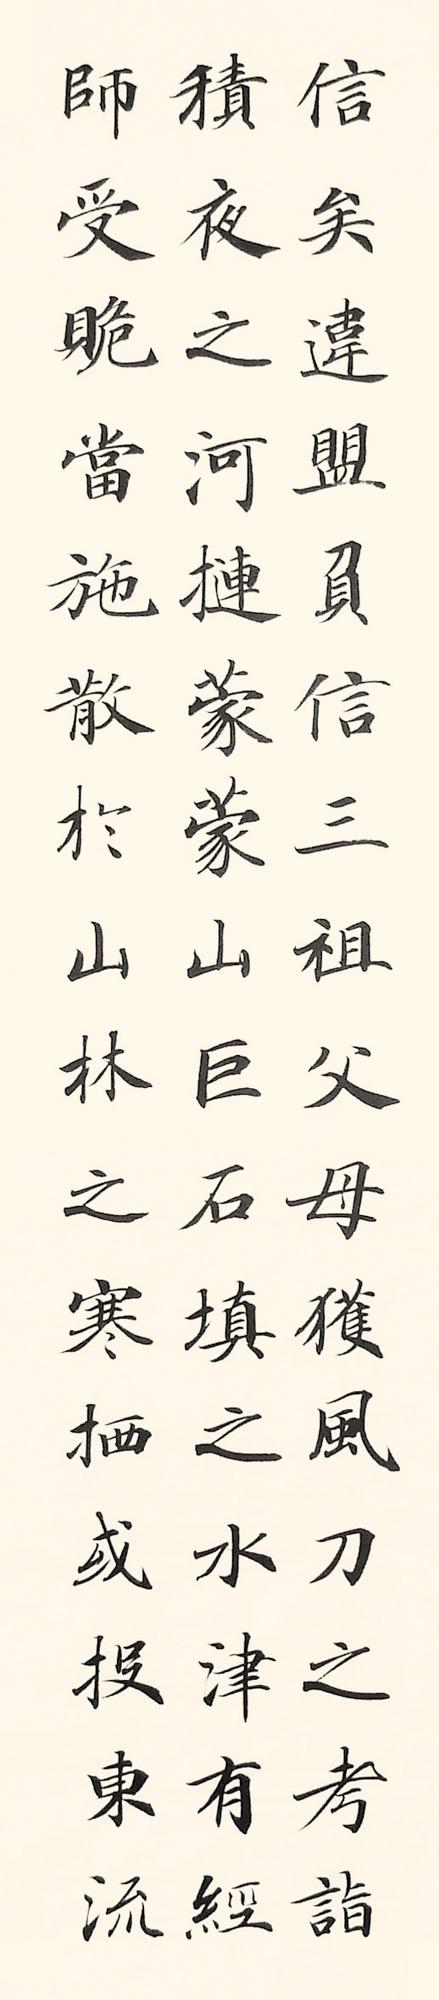 信矣違盟負信三祖父母獲風刀之考詣
積夜之河摙蒙蒙山巨石填之水津有經
師受賄當施散於山林之寒栖或投東流